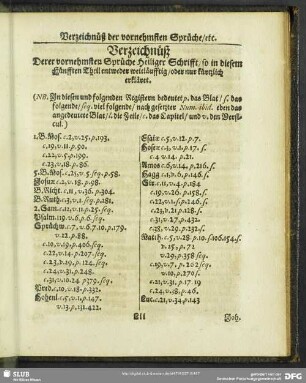 Verzeichnüß der vornehmsten Sprüche/etc.
Verzeichnüß
Derer vornehmsten Sprüche Heiliger Schrifft/ so in diesem
Fünfften Theil entweder weitläufftig/ oder nur kürtzlich
erkläret.
(NB. In diesen und folgenden Registern bedeutet p. das Blat/ f. das
folgende/ seq. viel folgende/ nach gesetzter Num. ibid. eben das
angedeutete Blat/ l. die Zeile/ c. das Capitel/ und v. den Versi-
cul.)
1. B. Mos. c.2, v.25. p.193.
c.19, v.11. p.90.
c.22, v.5. p.199.
c.23, v.18. p.86.
5. B. Mos. c.23, v.5. p.58.
Josux c.2, v.18. p.98.
B. Richt. c.11, v.36. p.304.
B. Ruth. c.3, v.1. p.281.
2. Sam. c.12, v.11. p.25. seq.
Psalm. 119. v.6. p.6.
Sprüchw. c.7, v.6.7.10. p.179.
v.22. p.88.
c.10, v.19. p.406. seq.
c.22, v.14. p.207. seq.
c.23, v.19. p.124. seq.
c.24, v.31. p.248.
c.31, v.10.24. p.79. seq.
Pred. c.10, v.18. p.332.
Hohenl. c.5, v.1. p.147.
v.13. p.131.422.
Esaix c.5, v.12. p.7.
Hosex c.4, v.1. p.17. f.
c.4 v.14. p.21.
Amos c.6, v.14. p.216. f.
Hagg. c.1, v.6. p.146. f.
Sir. c.11, v.4. p.184
c.19, v.26. f. p.188. f.
c.23, v.21. p.128. f.
c.31, v.27. p.432.
c.38, v.29. p.232. f.
Matth. c.5, v.28. p.10. f. 106.154. f.
v.15. p.71
v.29. p.358 seq.
c.19, v.7. p.202. f. seq.
v.10. p.270 f.
c.21, v.31. p.17.19
c.24, v.18. p.46.
Luc. c.21, v.34. p.143
Lll
Joh.
SLUB
DFG